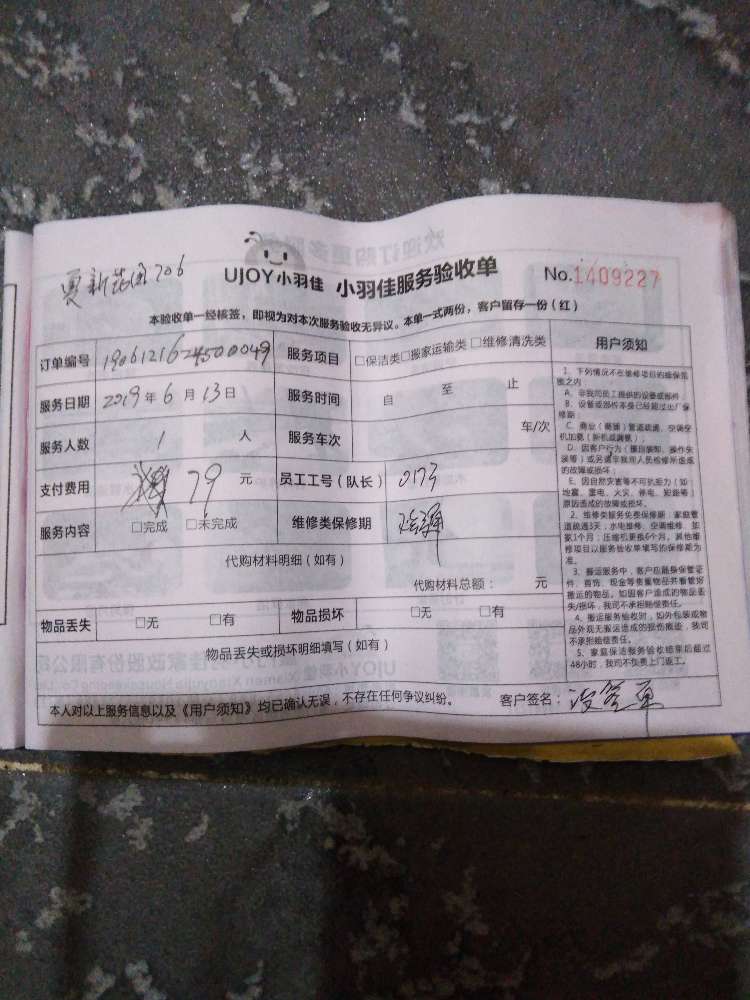 夏新花园706
UJOY小羽佳 小羽佳服务验收单 No.1409227
本验收单一经核签，即视为对本次服务验收无异议。本单一式两份，客户留存一份（红）
订单编号 服务项目 □保洁类□搬家运输类□维修清洗类 用户须知
服务日期 2019年6月13日 服务时间 自 至 止
服务人数 1 人 服务车次 车/次
支付费用 79 元 员工工号（队长） 0173
服务内容 □完成 □未完成 维修类保修期
代购材料明细（如有）
代购材料总额： 元
物品丢失 □无 □有 物品损坏 □无 □有
物品丢失或损坏明细填写（如有）
本人对以上服务信息以及《用户须知》均已确认无误，不存在任何争议纠纷。 客户签名：没签单
1、下列情况不在维修项目的维保范
围之内：
A、非我司员工提供的设备或部件；
B、设备或部件本身已经超过出厂保
修期；
D、因客户行为（擅自装卸、操作失
误等）或另请非我司人员检修所造成
的故障或损坏；
E、因自然灾害等不可抗力（如：
地震、雷电、火灾、停电、短路等）
原因造成的故障或损坏。
2、维修类服务免费保修期：家庭管
道疏通3天；水电维修、空调维修、加
氟1个月；压缩机更换6个月。其他维
修项目以服务验收单填写的保修期为
准。
3、搬运服务中，客户应随身保管证
件、首饰、现金等贵重物品并看管好
搬运的物品。如因客户造成的物品丢
失/损坏，我司不承担赔偿责任。
4、搬运服务验收时，如外包装或物
品外观无搬运造成的损伤痕迹，我司
不承担赔偿责任。
5、家庭保洁服务验收结束后超过
48小时，我司不负责上门返工。